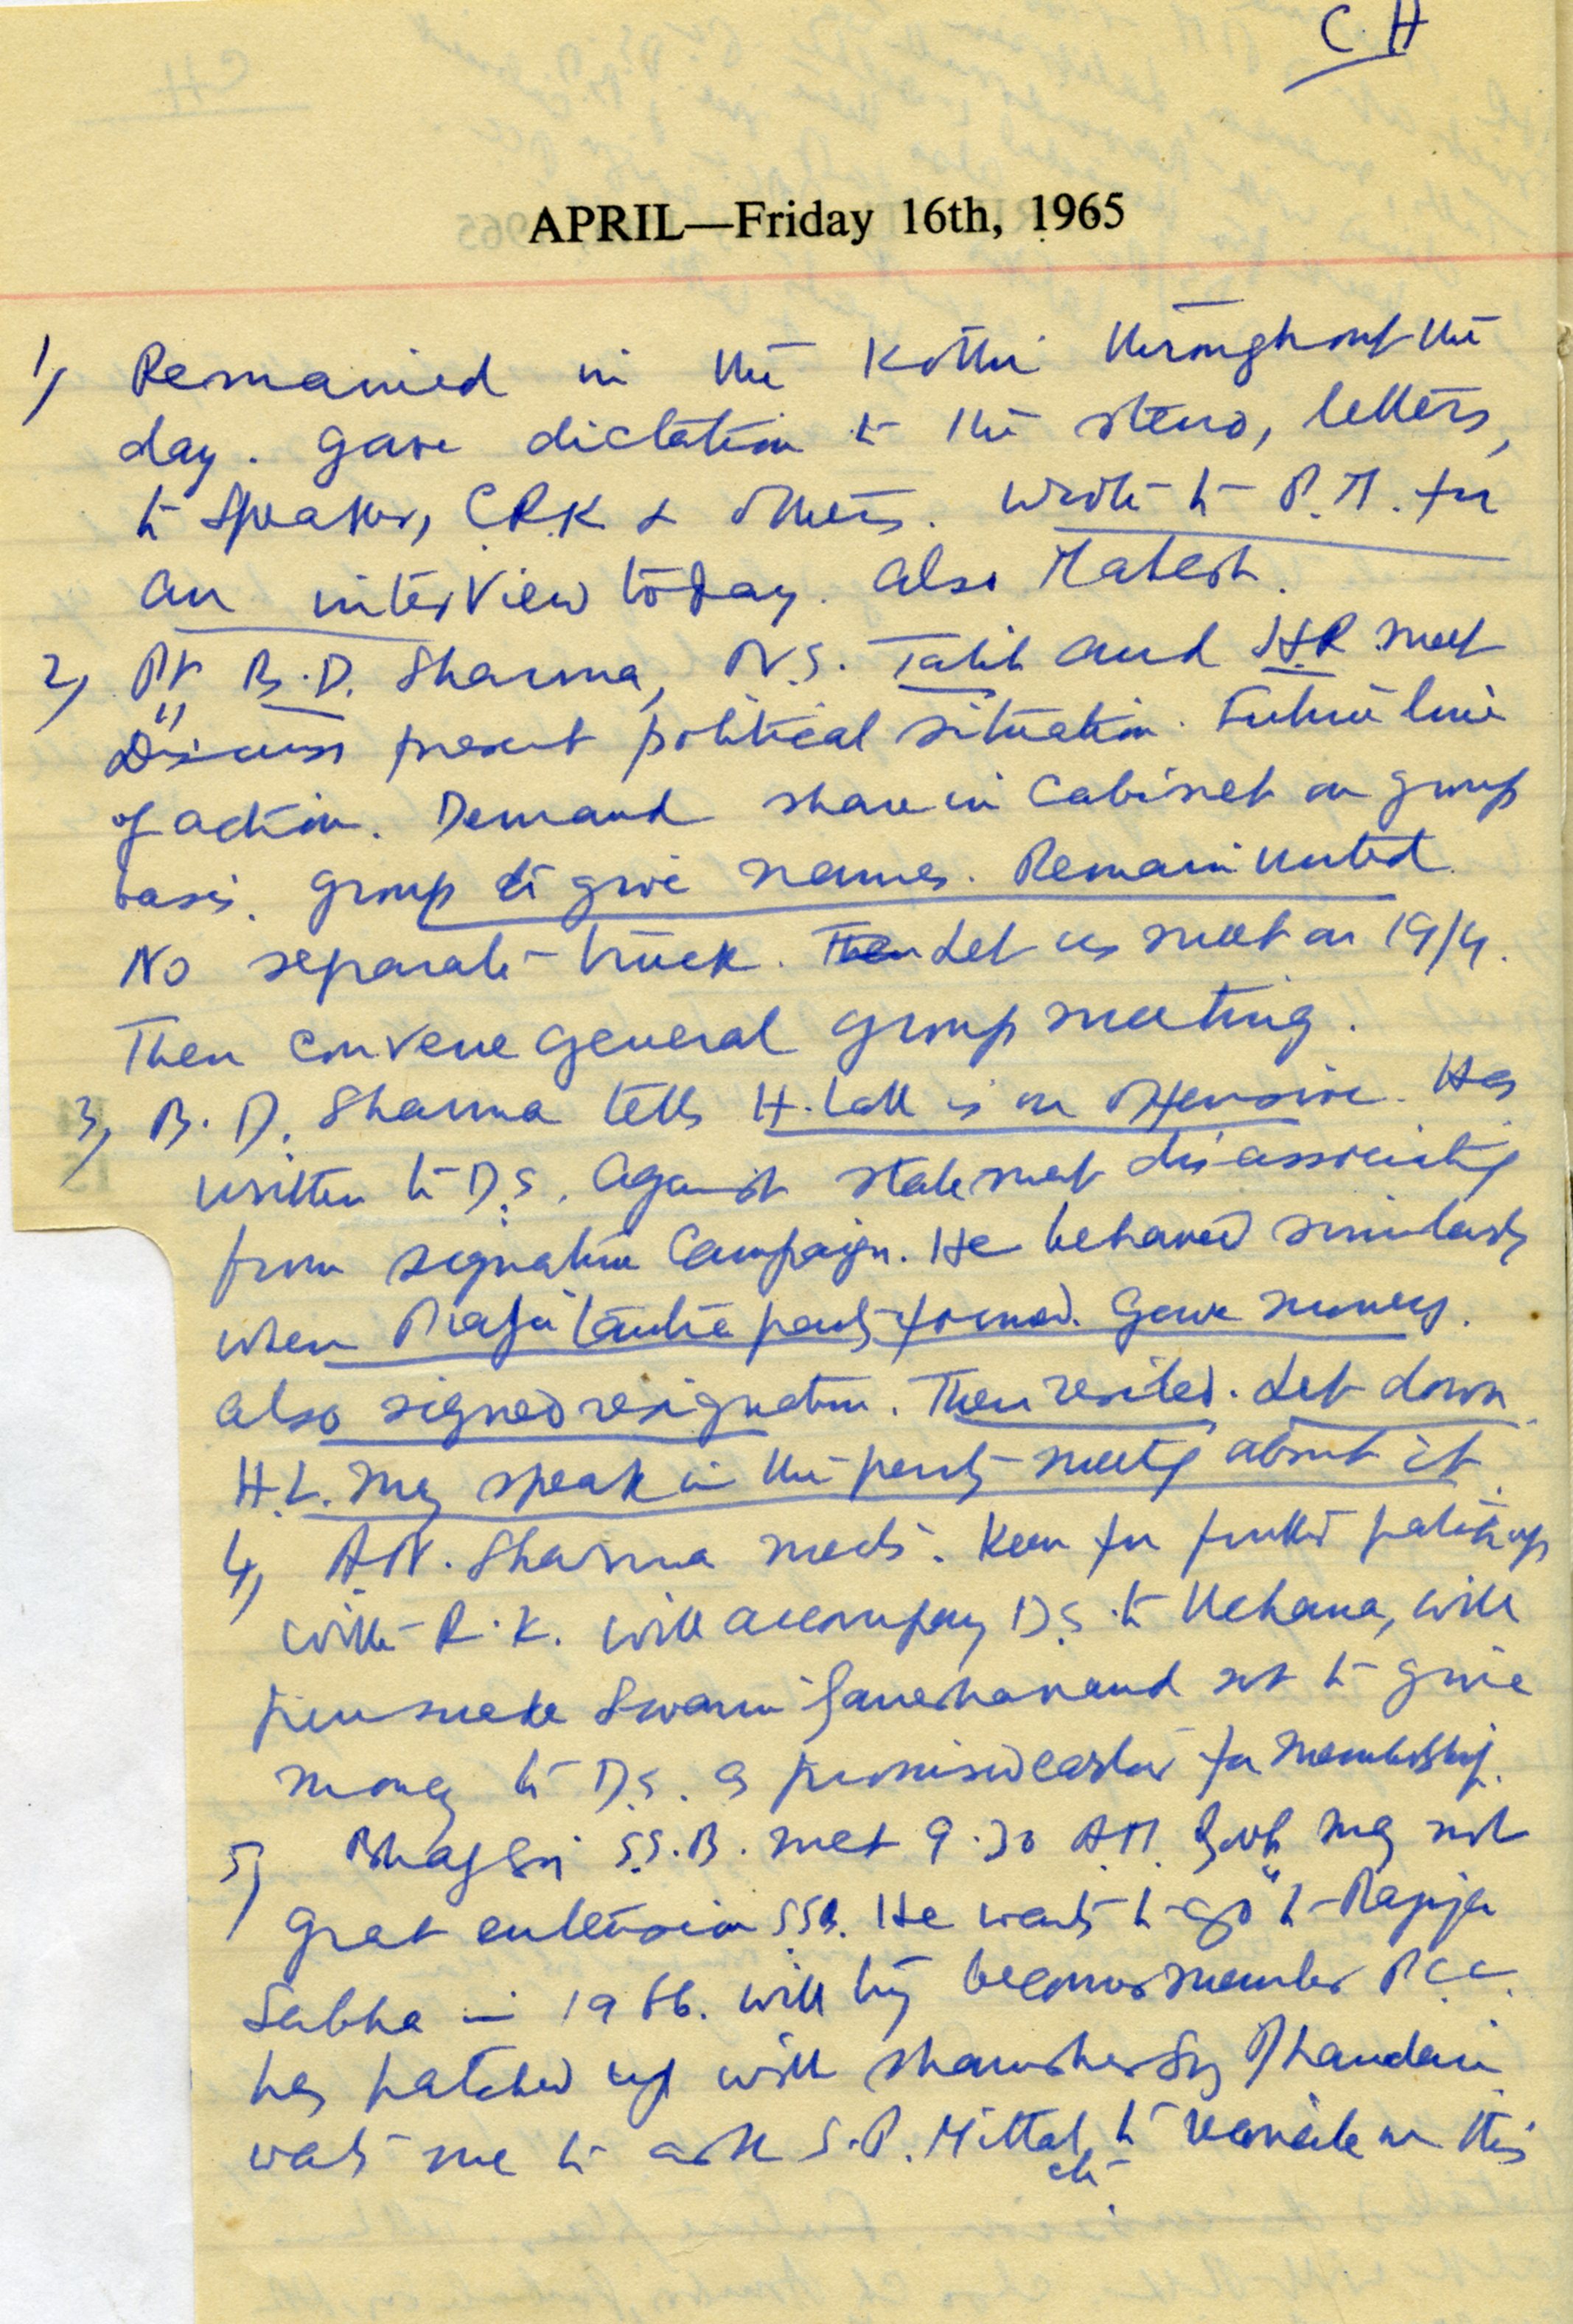 C.H
APRIL—Friday 16th, 1965
1) Remained in the Kothi throughout the
day. Gave dictation to the steno, letters,
to Speaker, C.R.K & others. Wrote to P.M. for
an interview today. Also Mahesh.
2) Pt B.D. Sharma, N.S. Talib and H.R meet
Discuss present political situation. Future line
of action. Demand share in Cabinet on group
basis. Group to give names. Remain united.
No separate truck. Let us meet on 19/4.
Then convene general group meeting.
3) B.D. Sharma tells H.Lall is on offensive. Has
written to D.S. against statement disassociating
from signature campaign. He behaved similarly
when Praja tantra party formed. Gave money.
also signed resignation. Then resiled. Let down
H.L. may speak in the party meeting about it.
4) A.N. Sharma meets. Keen for further patch up
with R.K. will accompany D.S. to Uchana, will
persuade Swami not to give
money to D.S. as promised earlier for membership.
5) S.S.B. met 9.30 A.M. Govt may not
grant extension SSB. He wants to go to Rajya
Sabha in 1966. Will try become member PCC.
has patched up with Shamsher Sg
wants me to ask S.P. Mittal to reconcile on this